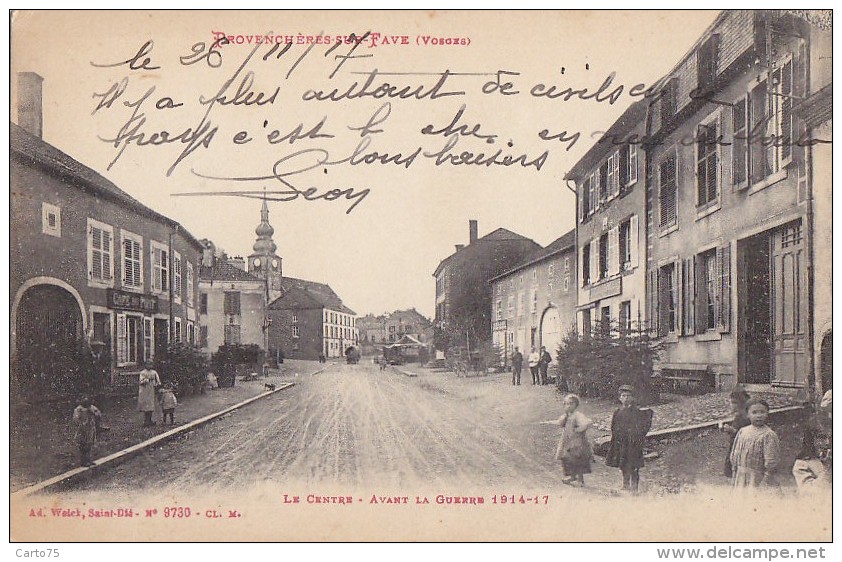 PROVENCHÈRES-SUR-FAVE (VOSGES)
le 26/11/17
Il y a plus autant de civils
pays c'est la en
bons baisers
Léon
LE CENTRE - AVANT LA GUERRE 1914-17
Ad. Weick, Saint-Dié - N° 9730 - CL. M.
Carto75
http://www.delcampe.net